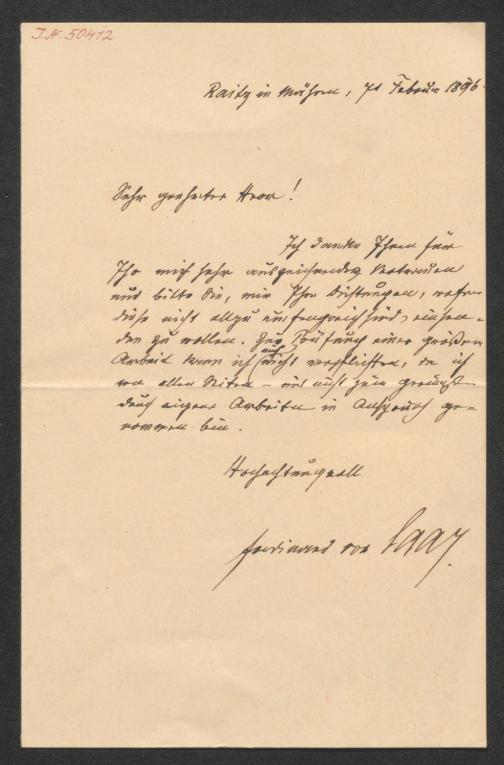 J.N. 50412
Raitz in Mähren, 7t Februar 1896.
Sehr geehrter Herr!
Ich danke Ihnen für
Ihr mich sehr auszeichnendes Vertrauen
und bitte Sie, mir Ihre Dichtungen, wofern
diese nicht allzu umfangreich sind, einsen-
den zu wollen. Zur Prüfung einer größeren
Arbeit kann ich mich nicht verpflichten, da ich
von allen Seiten – und nicht zum geringst
durch eigene Arbeiten in Anspruch ge-
nommen bin.
Hochachtungsvoll
Ferdinand von Saar.